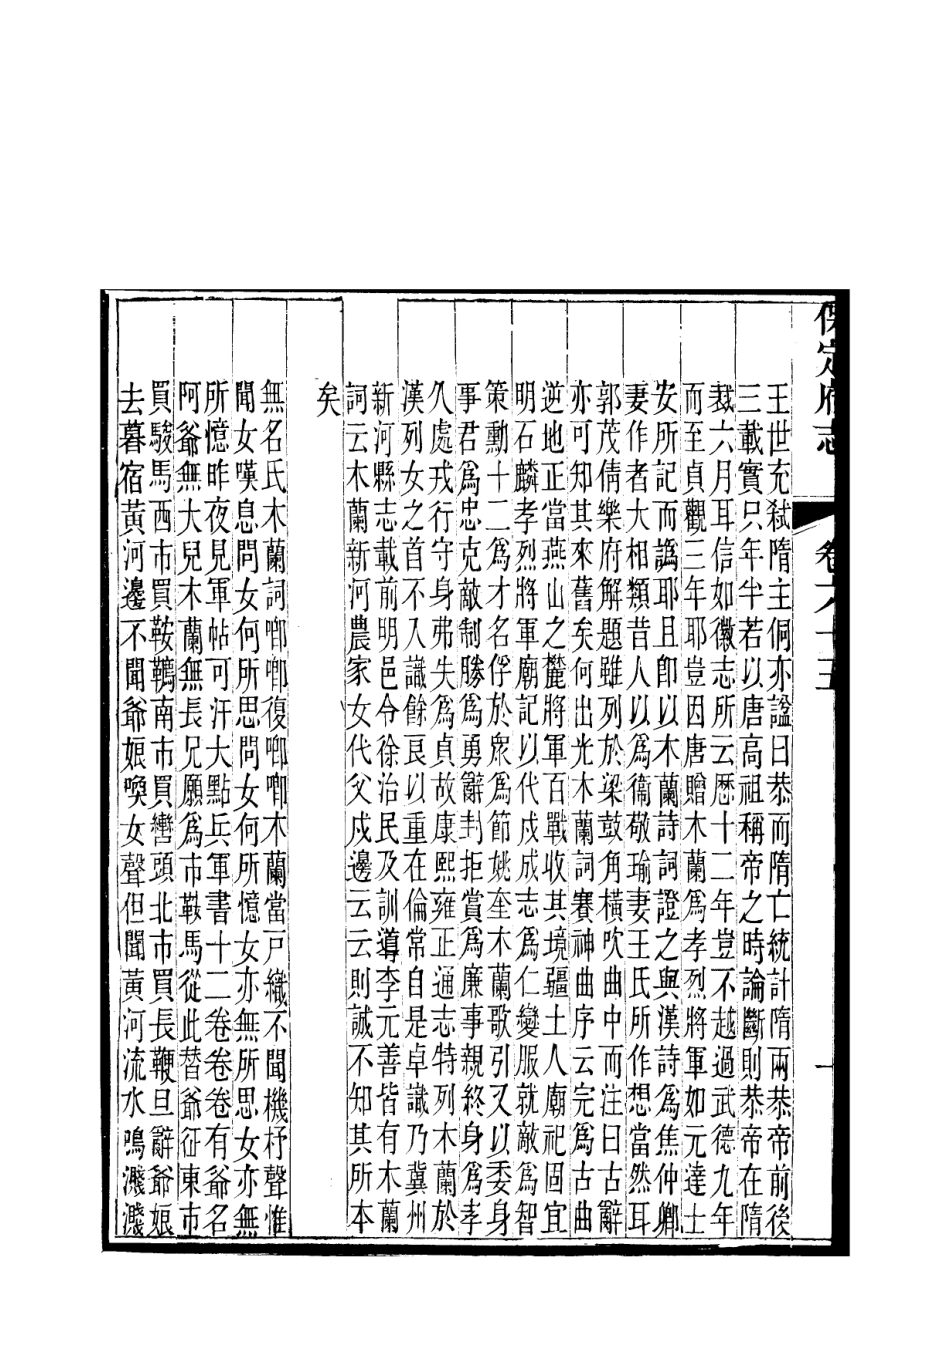 保定府志　卷六十五　一
王世充弑隋主侗亦諡曰恭而隋亡統計隋兩恭帝前後
三載實只年半若以唐高祖稱帝之時論斷則恭帝在隋
裁六月耳信如徽志所云歷十二年豈不越過武德九年
而至貞觀三年耶豈因唐贈木蘭爲孝烈將軍如元達士
安所記而譌耶且卽以木蘭詩詞證之與漢詩爲焦仲卿
妻作者大相類昔人以爲衞敬瑜妻王氏所作想當然耳
郭茂倩樂府解題雖列於梁鼓角橫吹曲中而注曰古辭
亦可知其來舊矣何出光木蘭詞賽神曲序云完爲古曲
逆地正當燕山之麓將軍百戰收其境疆土人廟祀固宜
明石麟孝烈將軍廟記以代戍成志爲仁變服就敵爲智
策勳十二爲才名俘於衆爲節姚奎木蘭歌引又以委身
事君爲忠克敵制勝爲勇辭封拒賞爲廉事親終身爲孝
久處戎行守身弗失爲貞故康熙雍正通志特列木蘭於
漢列女之首不入識餘良以重在倫常自是卓識乃冀州
新河縣志載前明邑令徐治民及訓導李元善皆有木蘭
詞云木蘭新河農家女代父戍邊云云則誠不知其所本
矣
無名氏木蘭詞唧唧復唧唧木蘭當戸織不聞機杼聲惟
聞女嘆息問女何所思問女何所憶女亦無所思女亦無
所憶昨夜見軍帖可汗大點兵軍書十二卷卷卷有爺名
阿爺無大兒木蘭無長兄願爲市鞍馬從此替爺征東市
買駿馬西市買鞍韉南市買轡頭北市買長鞭旦辭爺娘
去暮宿黃河邊不聞爺娘喚女聲但聞黃河流水鳴濺濺